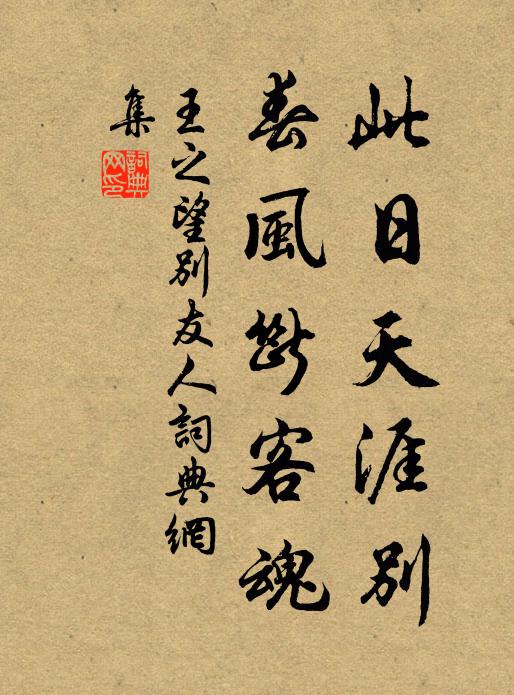 此日天涯別
春風斷客魂
王之望別友人詞典網
集
詞典
网印